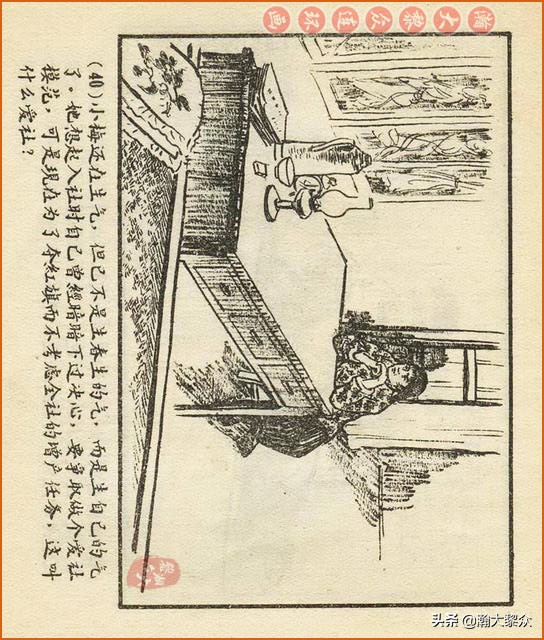 瀚大黎众连环画
(40)小梅还在生气，但已不是生春生的气，而是生自己的气
了。她想起入社时自己曾經暗暗下过决心，要争取做个爱社
模范，可是现在为了夺红旗而不考虑全社的增产任务，这叫
什么爱社？
头条 @瀚大黎众